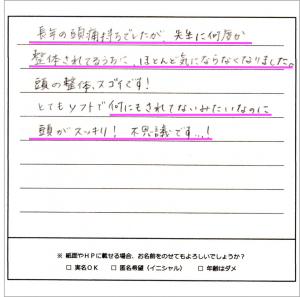 長年の頭痛持ちでしたが、先生に何度か
整体されてるうちに、ほとんど気にならなくなりました。
頭の整体、スゴイです!
とてもソフトで何にもされてないみたいなのに
頭がスッキリ! 不思議です…!
※ 紙面やHPに載せる場合、お名前をのせてもよろしいでしょうか?
□ 実名OK □ 匿名希望(イニシャル) □ 年齢はダメ